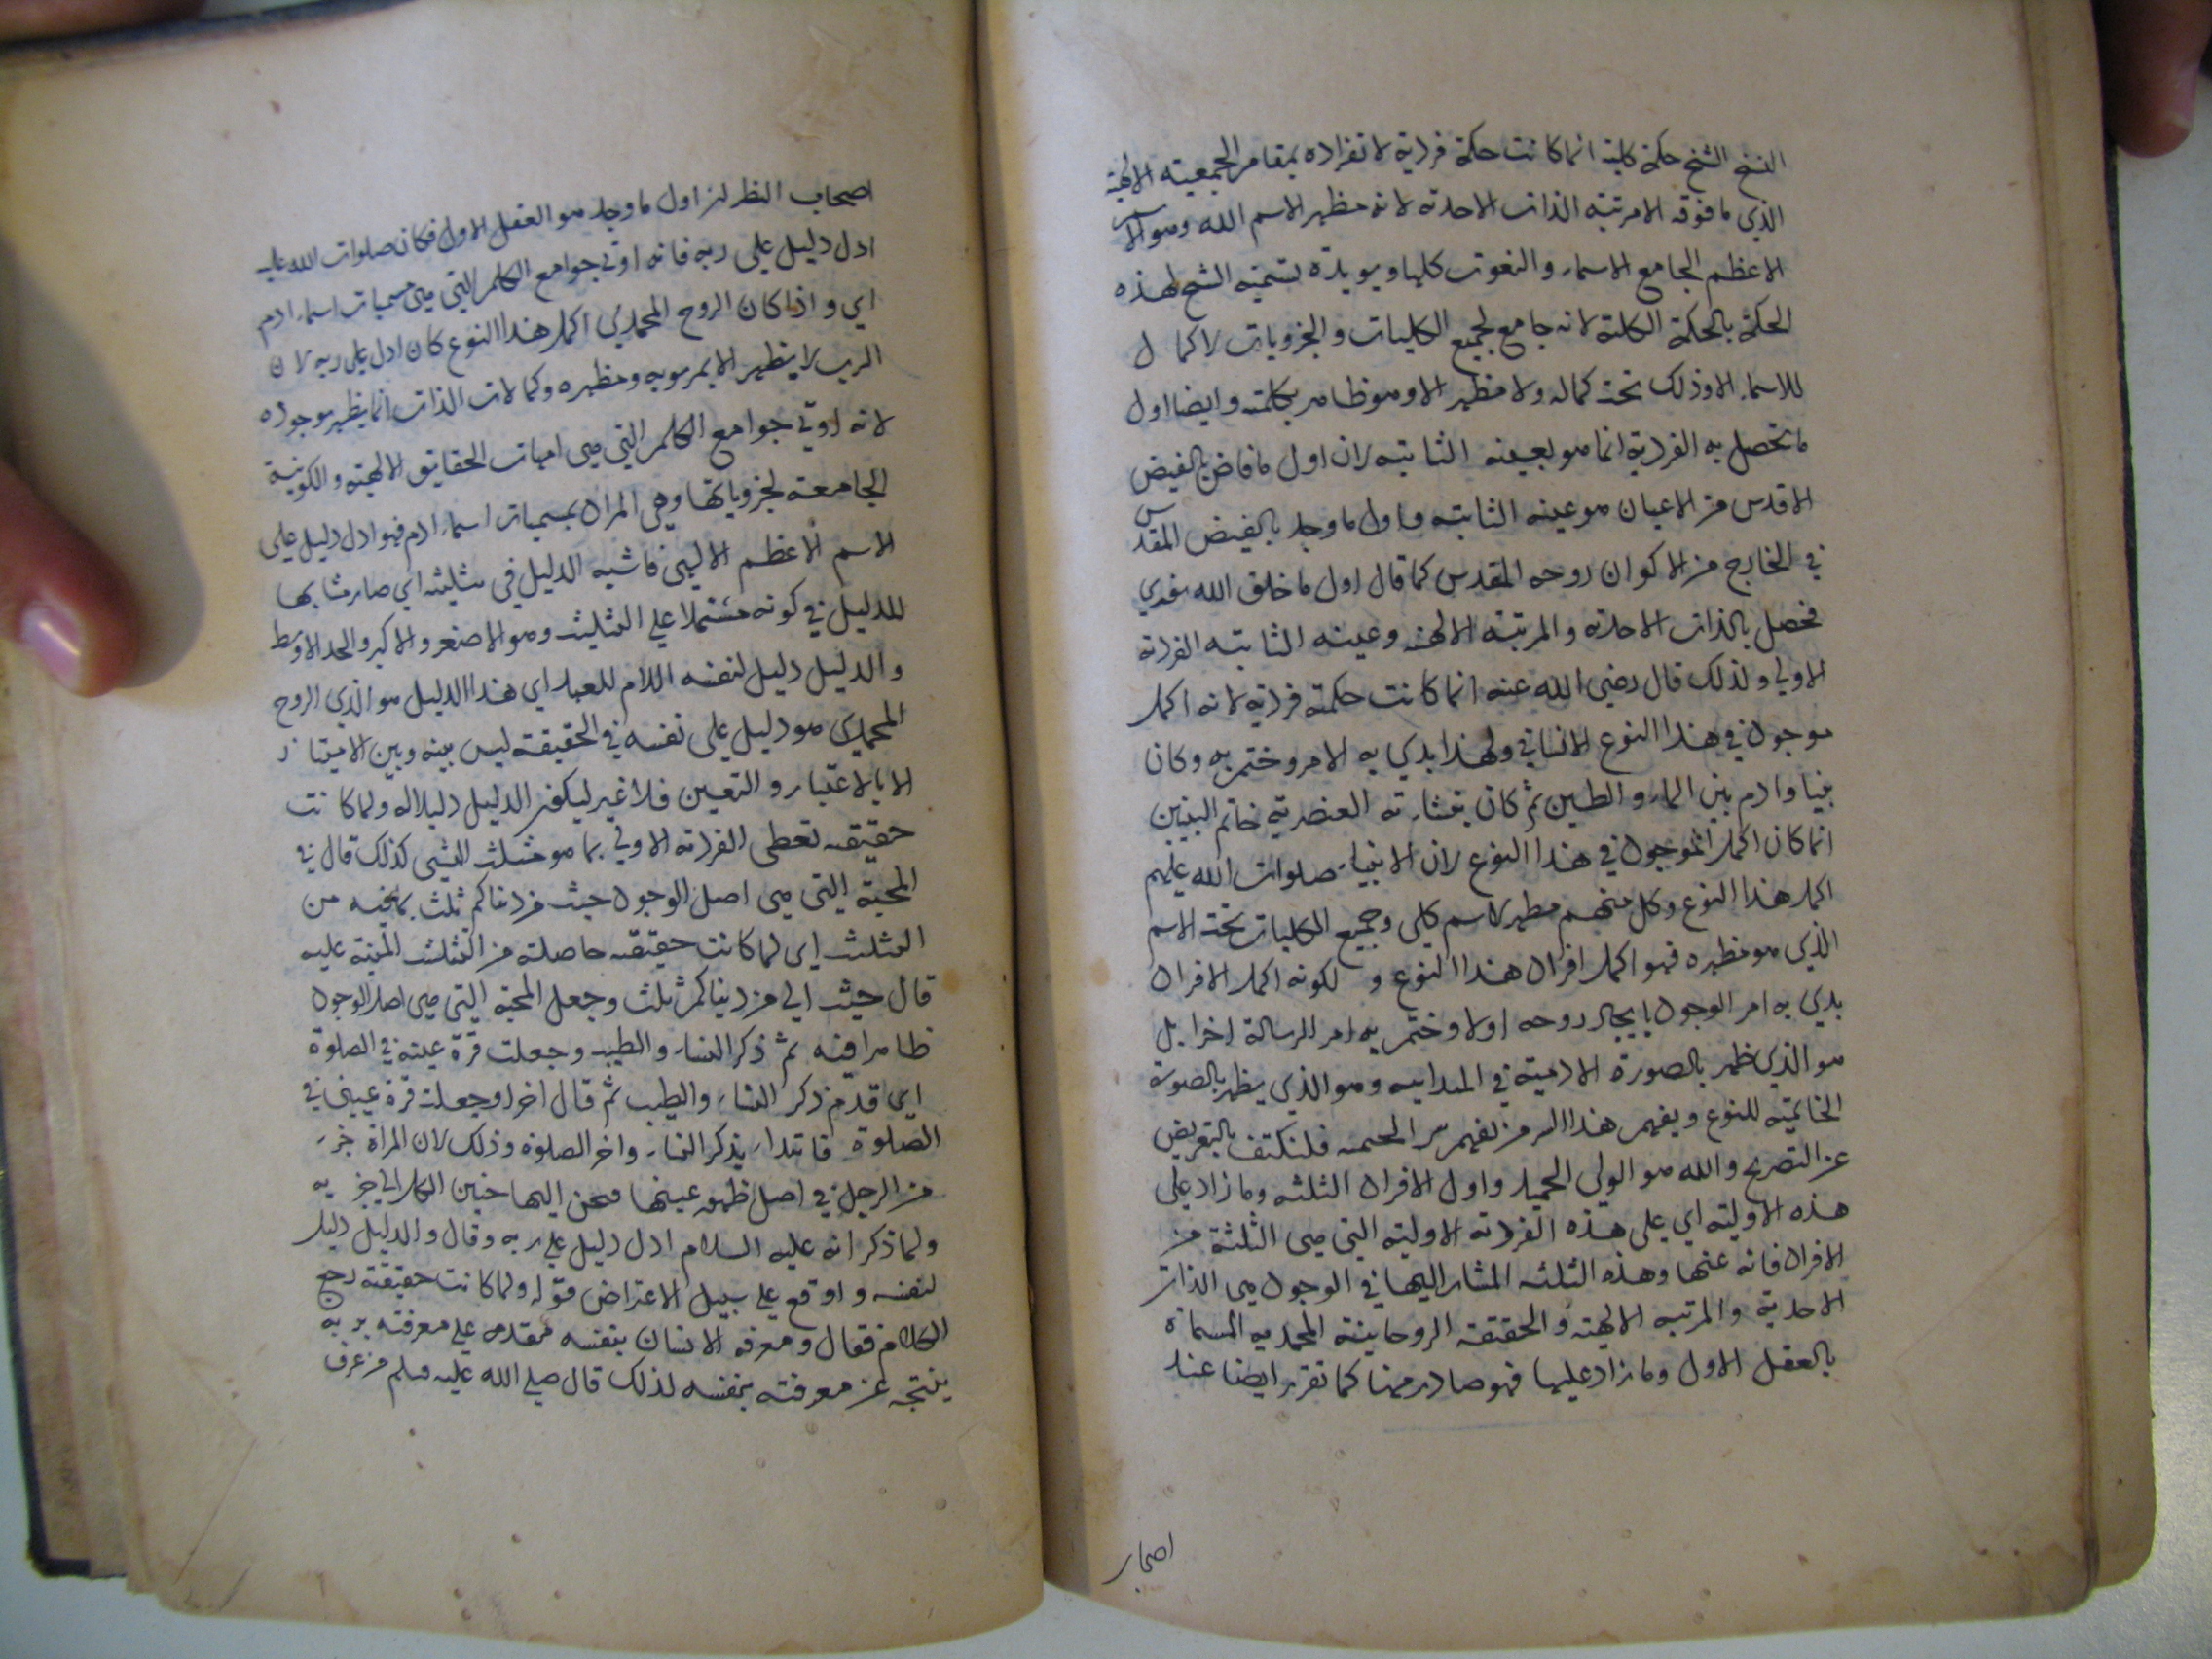 النسخ الشيخ حكمة كلية انما كانت حكمة فردية لانفراده بمقام الجمعية الالهية
الذي ما فوقه الا مرتبة الذات الاحدية لانه مظهر الاسم الله وهو الاسم
الاعظم الجامع للاسماء والنعوت كلها ويويده تسمية الشيخ لهذه
الحكمة بالحكمة الكلية لانه جامع لجميع الكليات والجزويات لا كمال
للاسماء الا وذلك تحت كماله ولا مظهر الا وهو ظاهر بكلمته وايضا اول
ما تحصل به الفردية انما هو بعينه الثابتة لان اول ما فاض بالفيض
الاقدس من الاعيان هو عينه الثابتة واول ما وجد بالفيض المقدس
في الخارج من الاكوان روحه المقدس كما قال اول ما خلق الله نوري
فحصل بالذات الاحدية والمرتبة الالهية وعينه الثابتة الفردية
الاولى ولذلك قال رضي الله عنه انما كانت حكمته فردية لانه اكمل
موجود في هذا النوع الانساني ولهذا بدي به الامر وختم به وكان
نبيا وادم بين الماء والطين ثم كان بنشاته العنصرية خاتم النبيين
انما كان اكمل الموجود في هذا النوع لان الانبياء صلوات الله عليهم
اكمل هذا النوع وكل منهم مظهر لاسم كلي وجميع الكليات تحت الاسم
الذي هو مظهره فهو اكمل افراد هذا النوع و لكونه اكمل الافراد
بدي به امر الوجود بايجاد روحه اولا وختم به امر الرسالة اخرا بل
هو الذي ظهر بالصورة الادمية في المبداييه وهو الذي يظهر بالصورة
الخاتمية للنوع ويفهم هذا السر من يفهم سر الختمية فلنكتف بالتعريض
عن التصريح والله هو الولي الحميد واول الافراد الثلثة وما زاد على
هذه الاولية اي على هذه الفردية الاولية التي هي الثلثة من
الافراد فانه عنها وهذه الثلثة المشار اليها في الوجود هي الذات
الاحدية والمرتبة الالهية والحقيقة الروحانية المحمدية المسماة
بالعقل الاول وما زاد عليها فهو صادر منها كما تقرر ايضا عند
اصحاب
اصحاب النظر ان اول ما وجد هو العقل الاول فكان صلوات الله عليه
ادل دليل على ربه فانه اوتي جوامع الكلم التي هي مسميات اسماء ادم
اي واذا كان الروح المحمدي اكمل هذا النوع كان ادل على ربه لان
الرب لا يظهر الا بمربوبه ومظهره وكمالات الذات انما يظهر بوجوده
لانه اوتي جوامع الكلم التي هي امهات الحقايق الالهية والكونية
الجامعة لجزوياتها وهي المراد بمسميات اسماء ادم فهو ادل دليل على
الاسم الاعظم الالهي فاشبه الدليل في تثليثه اي صار مشابها
للدليل في كونه مشتملا على التثليث وهو الاصغر والاكبر والحد الاوسط
والدليل دليل لنفسه اللام للعهد اي هذا الدليل هو الذي الروح
المحمدي هو دليل على نفسه في الحقيقة ليس بينه وبين الامتياز
الا بالاعتبار والتعيين فلا غير ليكون الدليل دليلا له ولما كانت
حقيقته تعطى الفردية الاولى بما هو مثلث النشى كذلك قال في
المحبة التي هي اصل الوجود حبب من دنياكم ثلث بما فيه من
التثليث اي لما كانت حقيقته حاصلة من التثليث المنبه عليه
قال حبب الي من دنياكم ثلث وجعل المحبة التي هي اصل الوجود
ظاهرا فيه ثم ذكر النساء والطيب وجعلت قرة عينه في الصلوة
اي قدم ذكر النساء والطيب ثم قال اخرا وجعلت قرة عيني في
الصلوة فابتداء بذكر النساء واخر الصلوة وذلك لان المراة جزء
من الرجل في اصل ظهور عينها فحن اليها حنين الكل الى جزيه
ولما ذكر انه عليه السلام ادل دليل على ربه وقال والدليل دليل
لنفسه واوقع على سبيل الاعتراض قوله ولما كانت حقيقته رجع
الكلام فقال ومعرفة الانسان بنفسه مقدمة على معرفته بربه
ينتجه عن معرفته بنفسه لذلك قال صلى الله عليه وسلم من عرف